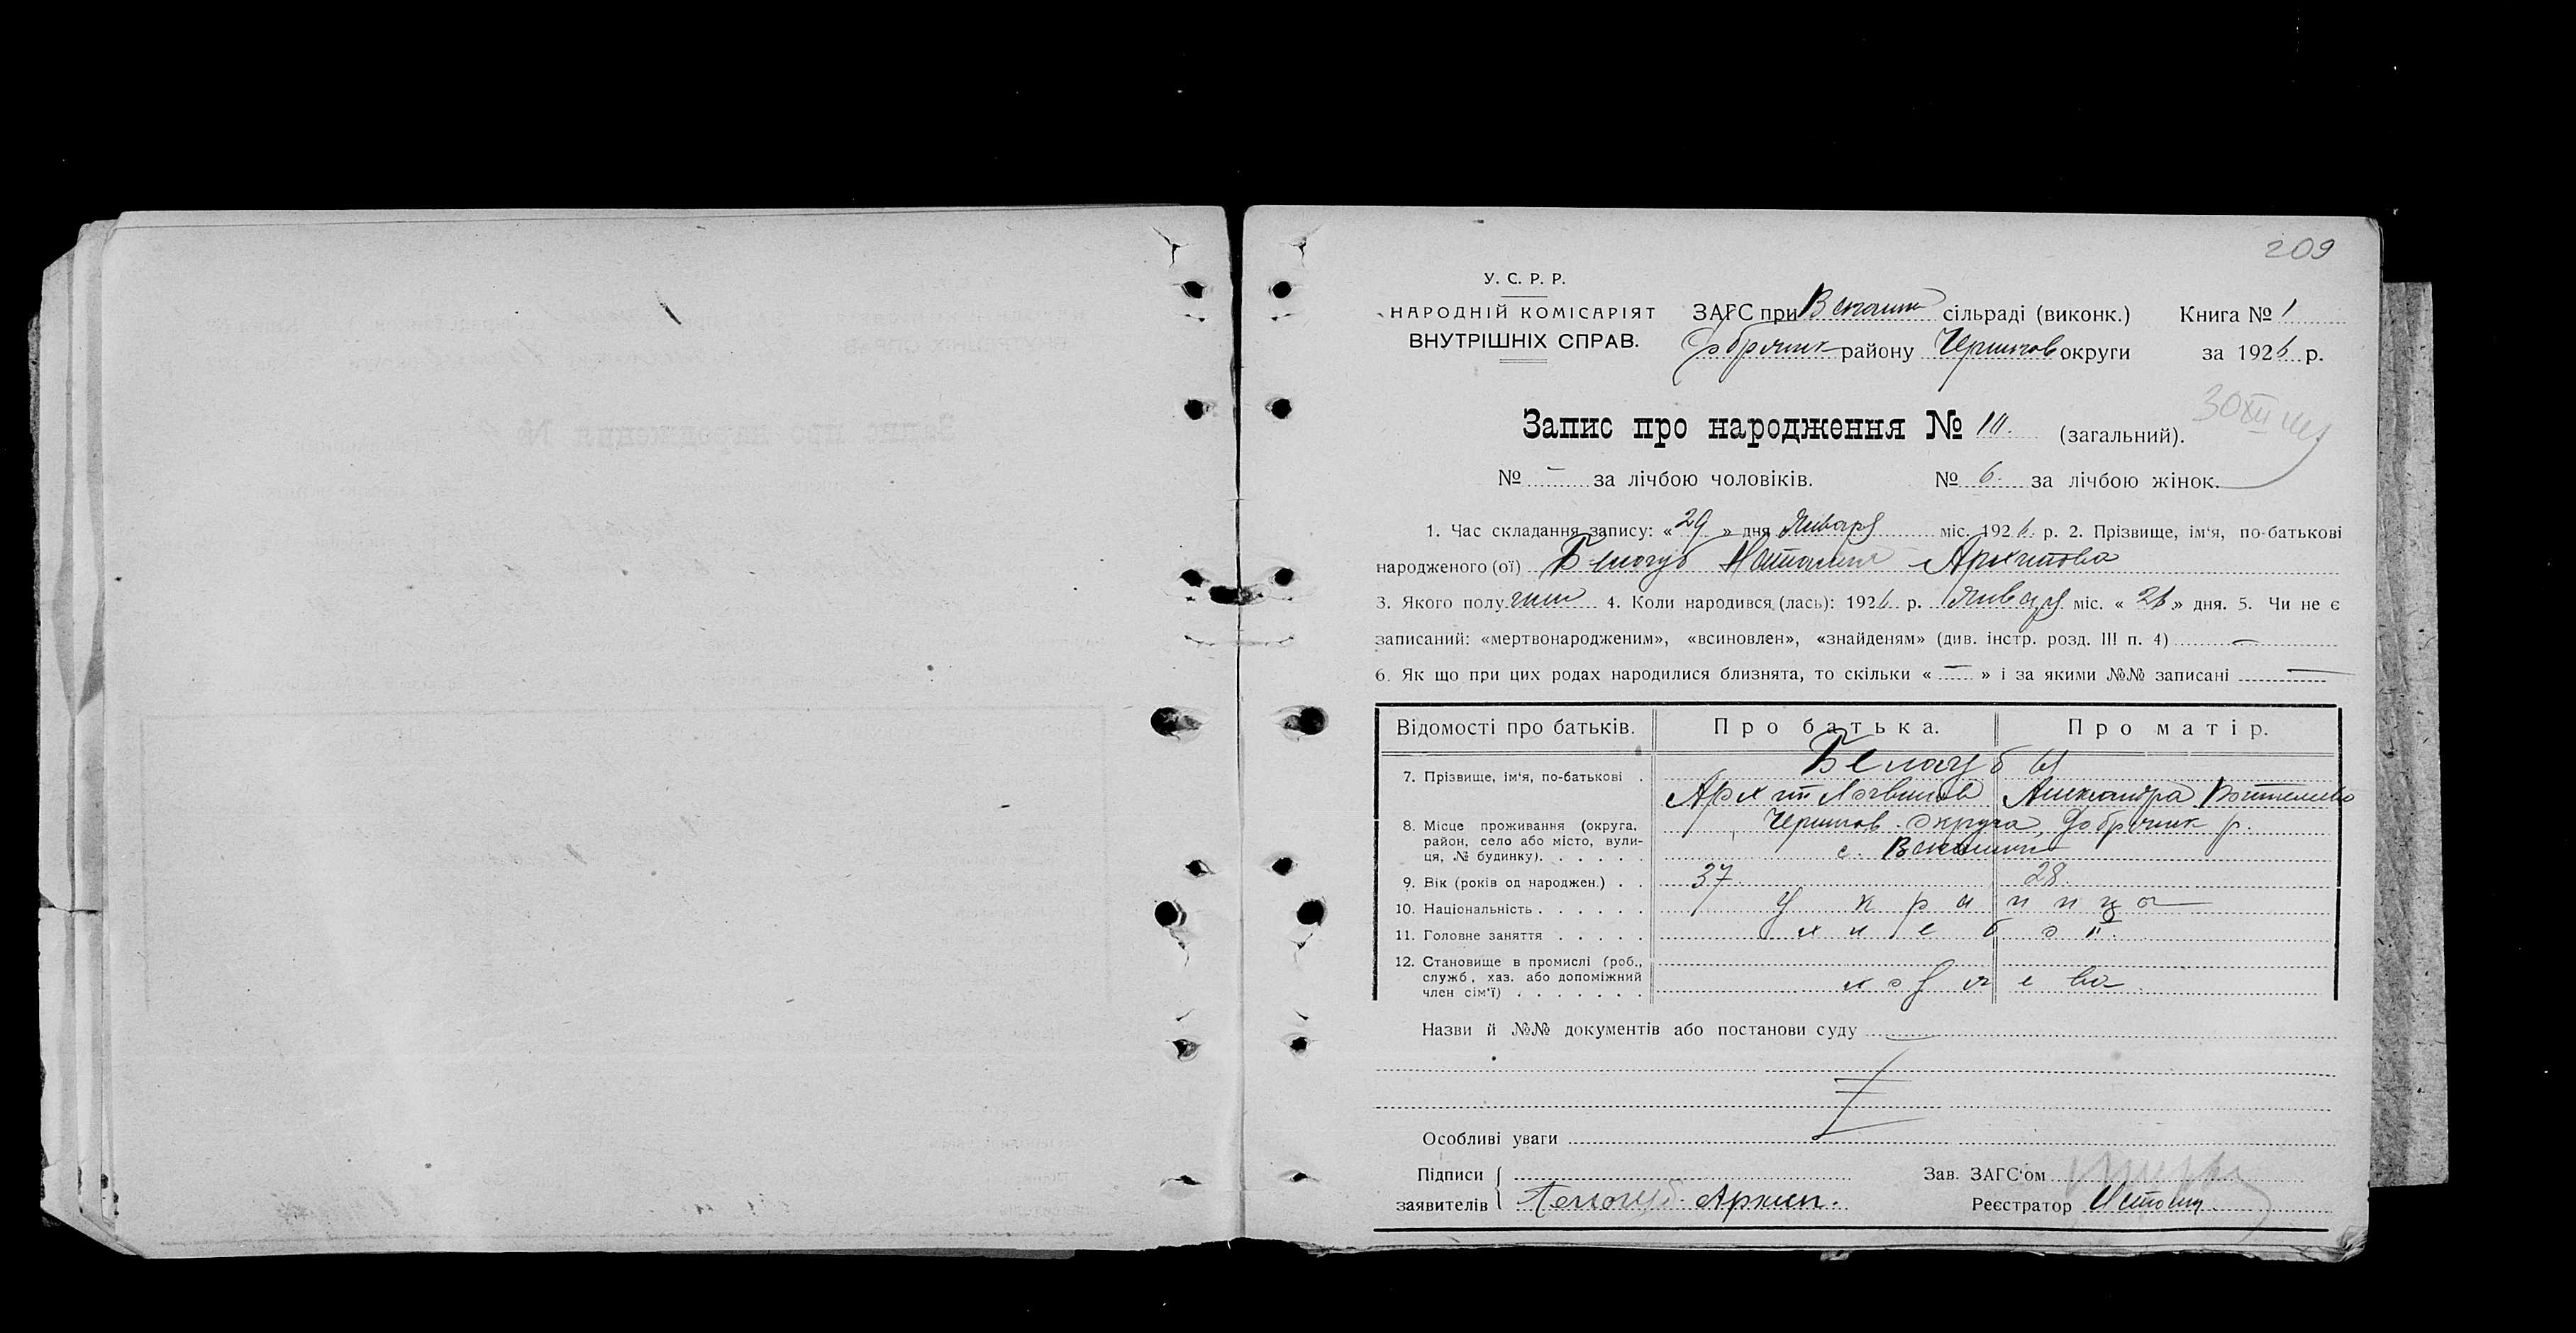 209
У. С. Р. Р.
НАРОДНІЙ КОМІСАРІЯТ
ВНУТРІШНІХ СПРАВ.
ЗАГС при сільраді (виконк.) Книга № 1
району Чернигов округи за 1926 р.
Запис про народження № (загальний).
№ — за лічбою чоловіків. № 6. за лічбою жінок.
1. Час складання запису: «29» дня Января міс. 1926 р. 2. Прізвище, ім'я, по-батькові
народженого (ої) Белогуб Наталия Архипова
3. Якого полу жен 4. Коли народився (лась): 1926 р. Января міс. «26» дня. 5. Чи не є
записаний: «мертвонародженим», «всиновлен», «знайденям» (див. інстр. розд. III п. 4) —
6. Як що при цих родах народилися близнята, то скільки «—» і за якими №№ записані —
Відомості про батьків. Про батька. Про матір.
7. Прізвище, ім'я, по-батькові . Белогубы
Архип Логвинов Александра
8. Місце проживання (округа, район, село або місто, вулиця, № будинку). Чернигов. округа, р.
с.
9. Вік (років од народжен.) . . 37. 28.
10. Національність . . . . . . украинца
11. Головне заняття . . . . . хлебо
12. Становище в промислі (роб., служб, хаз. або допоміжний член сім'ї) . . . . . . . хозяева
Назви й №№ документів або постанови суду
Особливі уваги
Підписи заявителів Белогуб. Архип.
Зав. ЗАГС'ом
Реєстратор